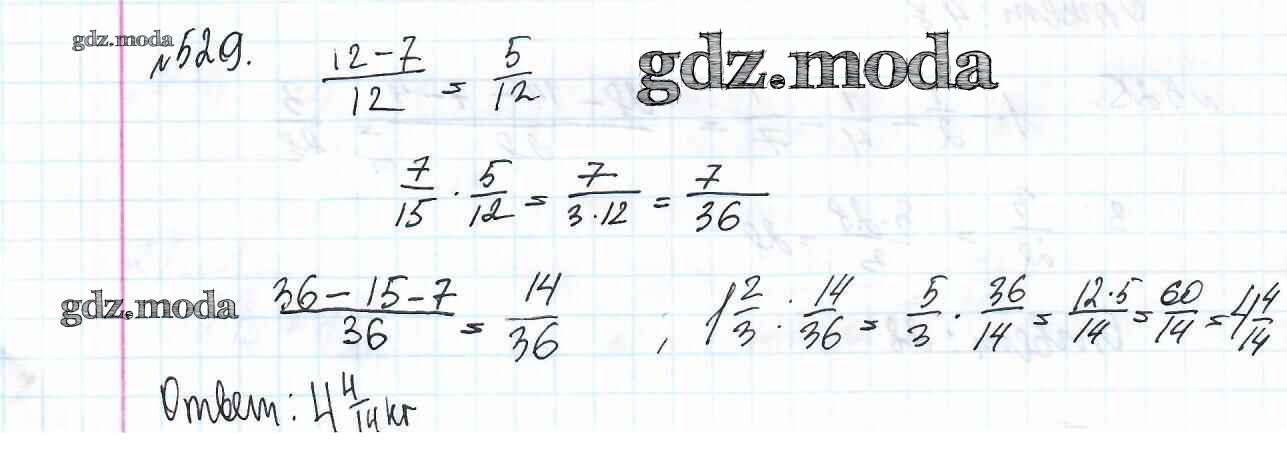 gdz.moda
№529. (12-7)/12 = 5/12 gdz.moda
7/15 · 5/12 = 7/(3·12) = 7/36
gdz.moda (36-15-7)/36 = 14/36 ; 1 2/3 : 14/36 = 5/3 · 36/14 = (12·5)/14 = 60/14 = 4 4/14
Ответ: 4 4/14 кг